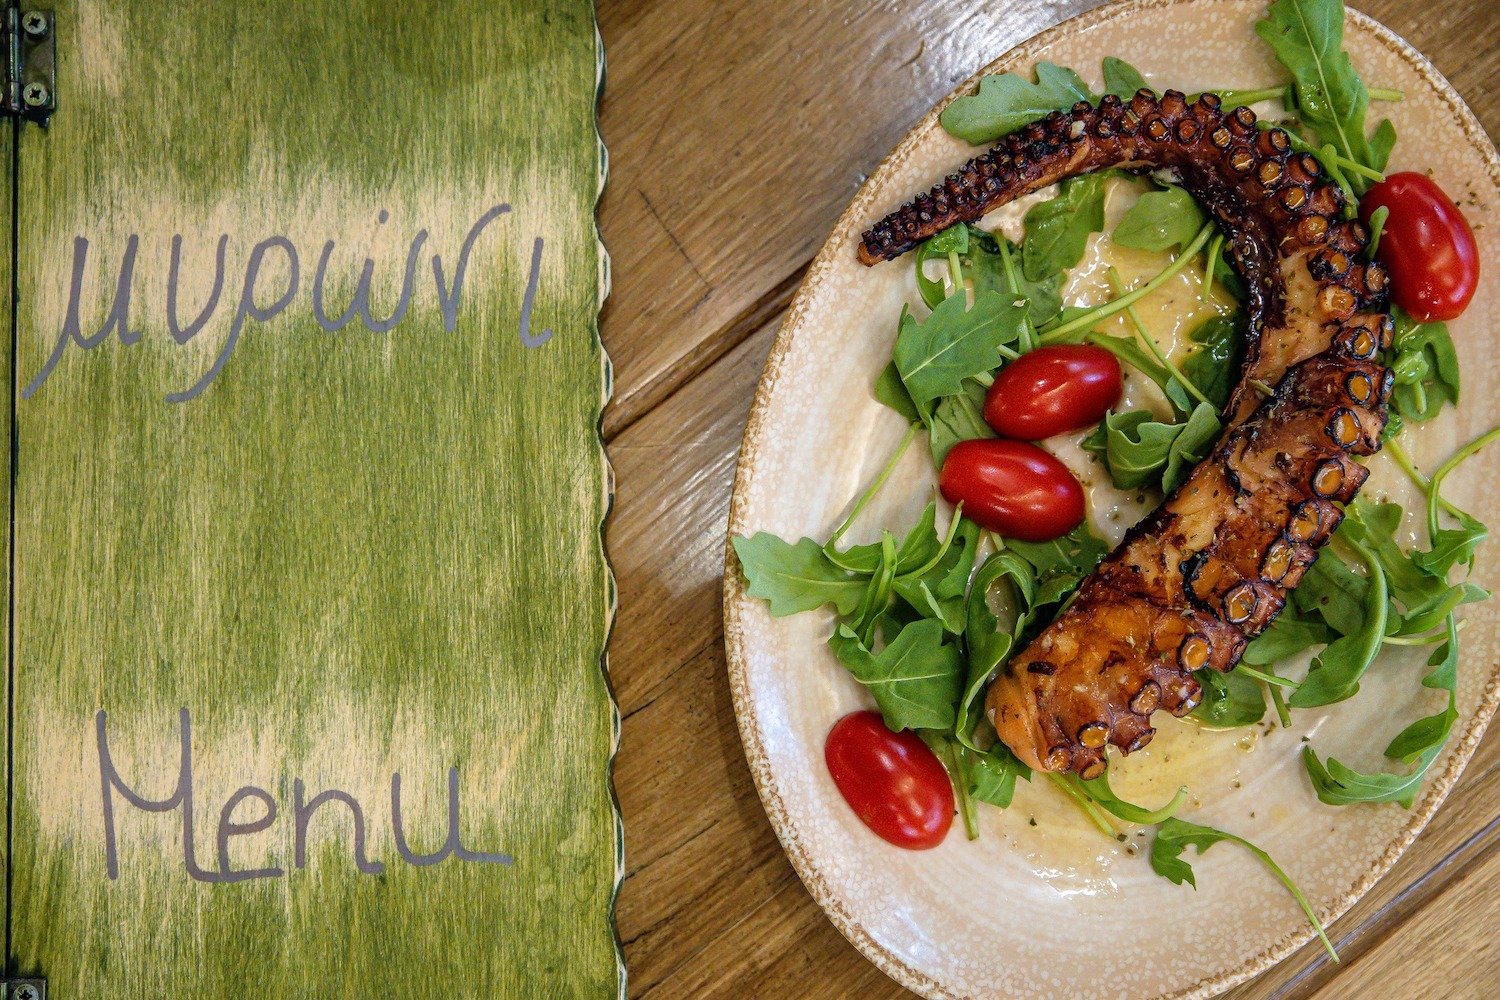 μυρώνι
Menu